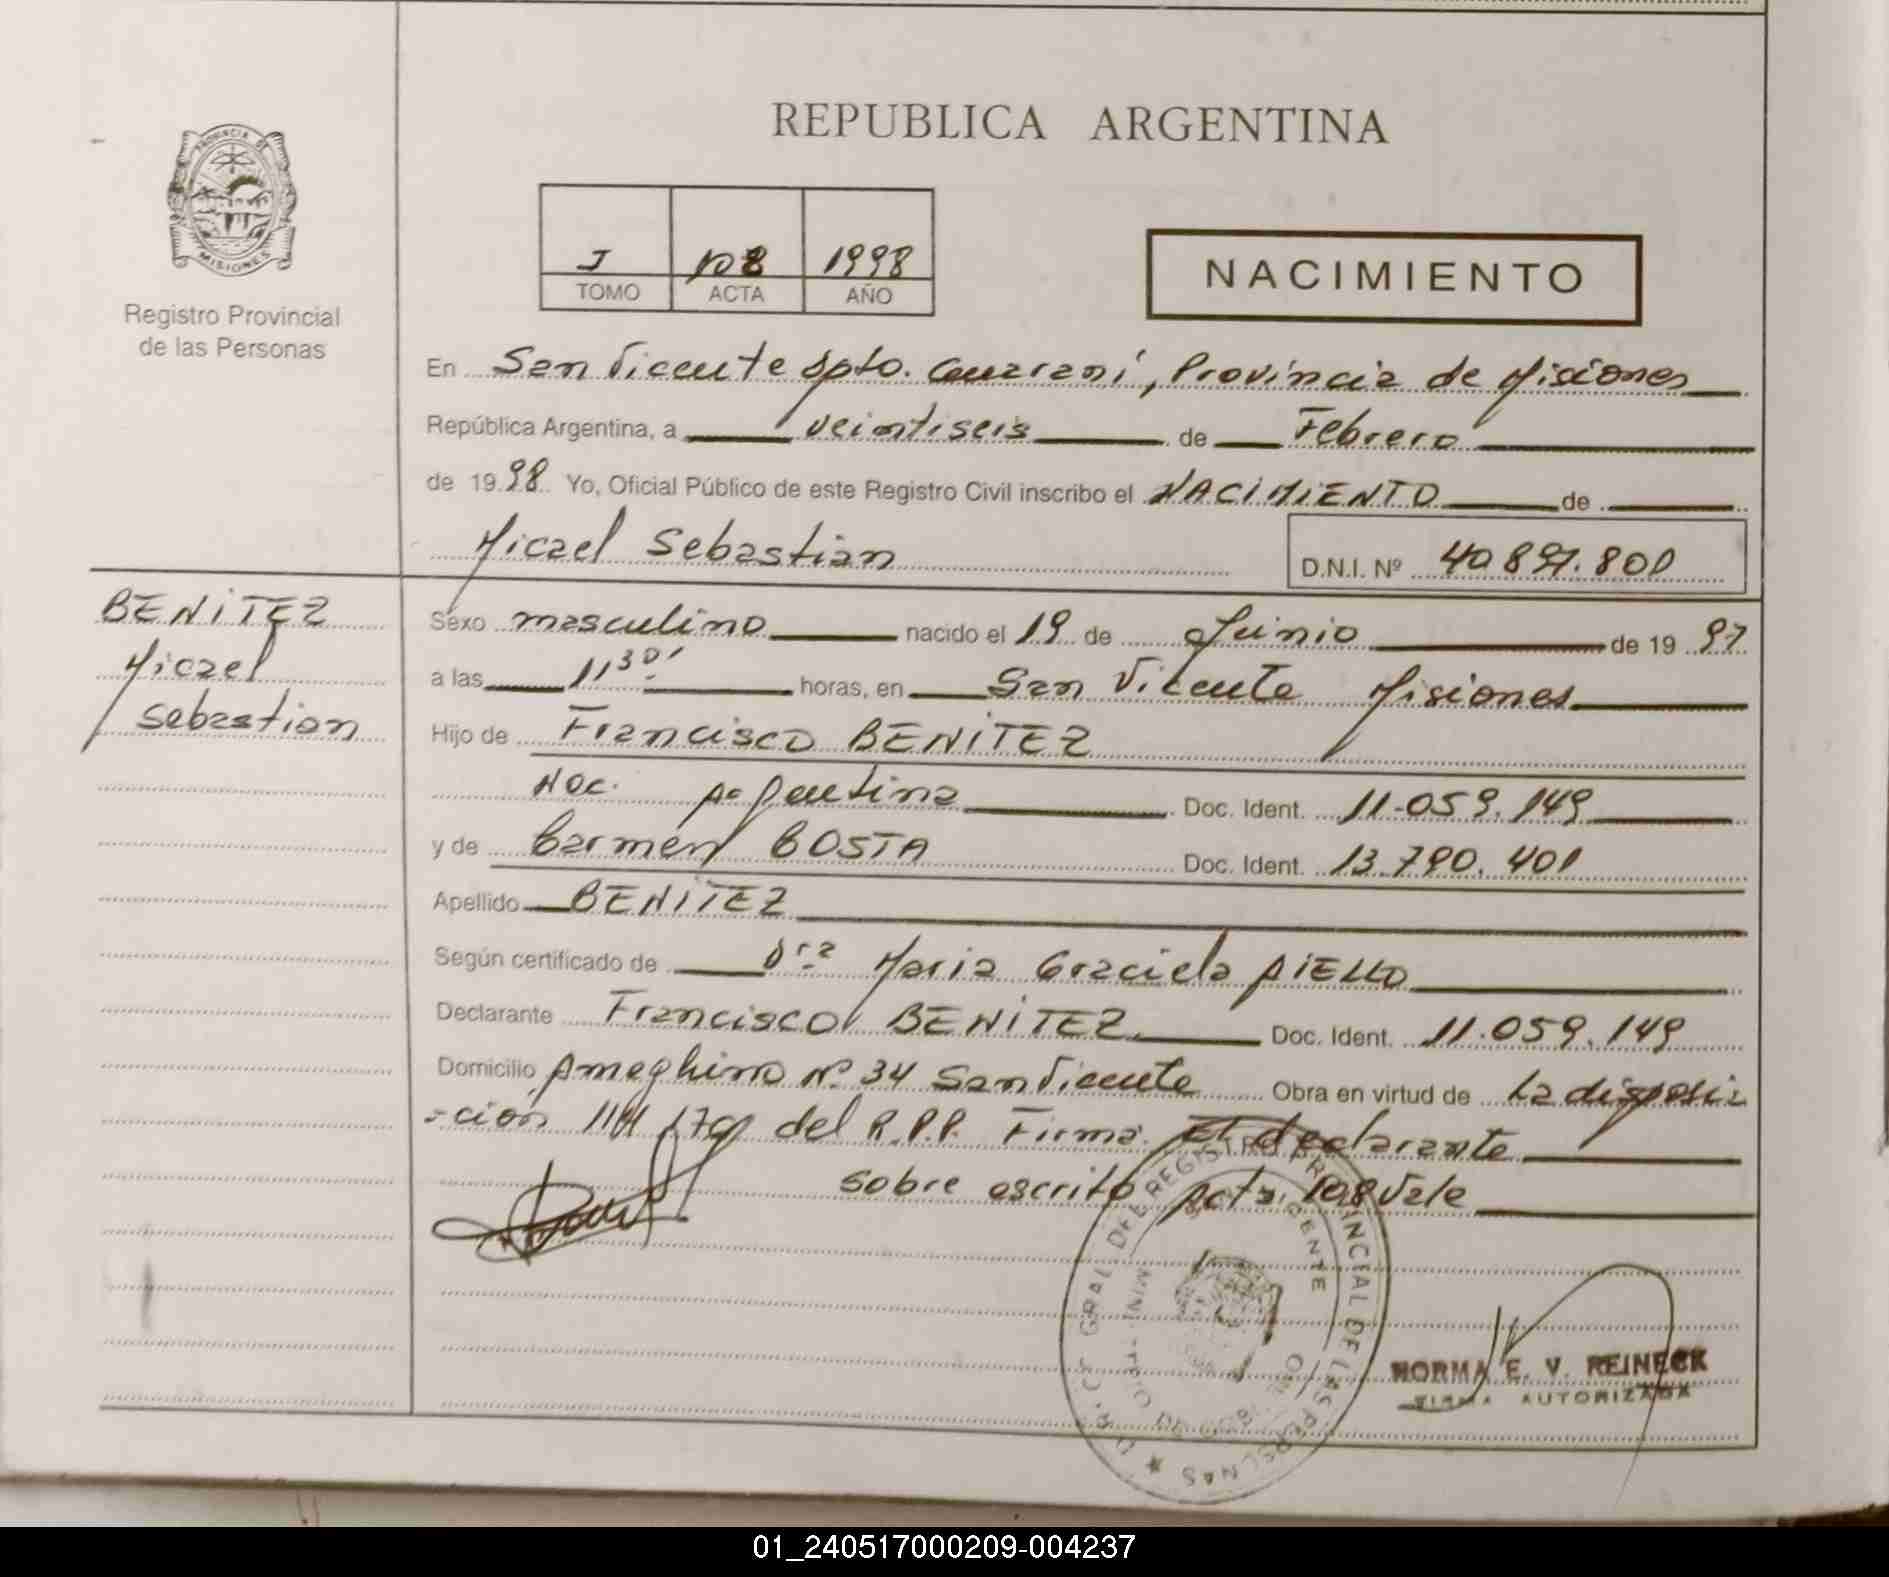 REPUBLICA ARGENTINA
PROVINCIA DE
MISIONES
Registro Provincial
de las Personas
I 108 1998
TOMO ACTA AÑO
NACIMIENTO
En San Vicente Dpto. Guaraní, Provincia de Misiones
República Argentina, a veintiseis de Febrero
de 1998 Yo, Oficial Público de este Registro Civil inscribo el NACIMIENTO de
Micael Sebastian
D.N.I. Nº 40.897.800
BENITEZ
Micael
Sebastian
Sexo masculino nacido el 19 de Junio de 1997
a las 11,30' horas, en San Vicente Misiones
Hijo de Francisco BENITEZ
Nac. Argentina Doc. Ident. 11.059.149
y de Carmen COSTA Doc. Ident. 13.790.401
Apellido BENITEZ
Según certificado de Dra Maria Graciela AIELLO
Declarante Francisco BENITEZ Doc. Ident. 11.059.149
Domicilio Ameghino Nº 34 San Vicente Obra en virtud de La disposi
=ción 1111/79 del R.P.P. Firma. El declarante
sobre escrito Acta. 108 Vale
GRAL DEL REGISTRO PROVINCIAL DE LAS PERSONAS
NORMA E. V. REINECK
FIRMA AUTORIZADA
01_240517000209-004237